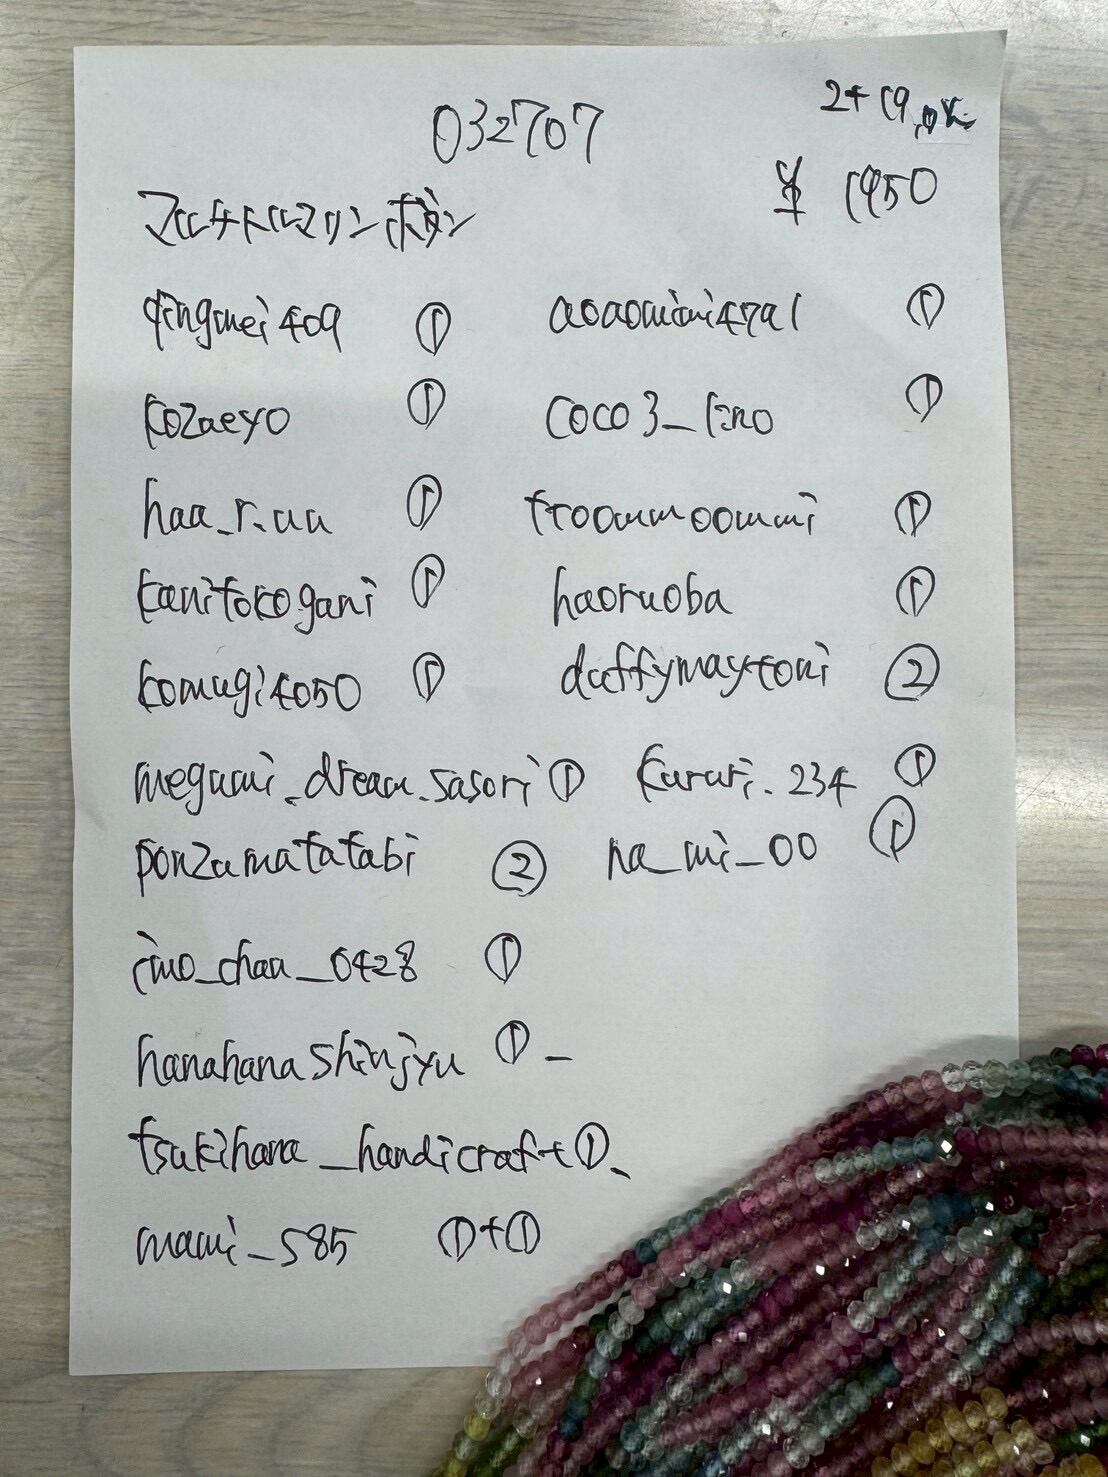 032707
¥ 1950
マルチトルマリンボタン
qingmei409 ①
kozaeyo ①
haa_r.uu ①
kanitokogani ①
komugi4050 ①
megumi_dream.sasori ①
ponzumatatabi ②
imo_chan_0428 ①
hanahanashinjyu ① -
tsukihana_handicraft ①
mami_585 ①+①
aoaomimi4791 ①
coco3_ ①
①
haoruoba ①
duffymaytoni ②
kururi.234 ①
na_mi_00 ①